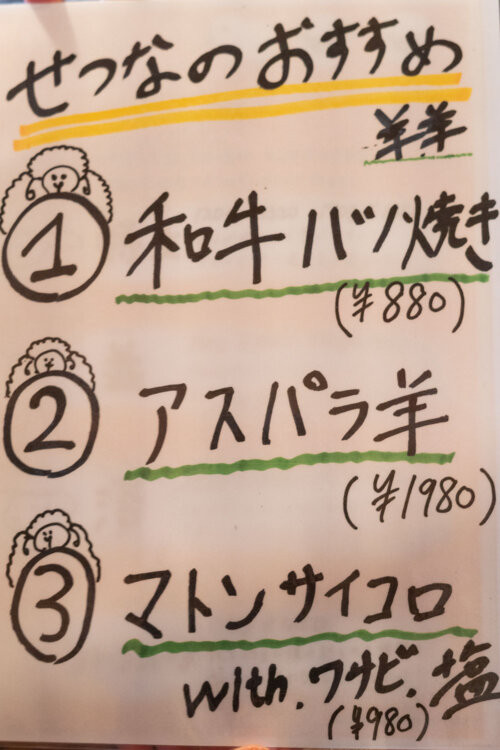 せつなのおすすめ
羊.羊
① 和牛バソ焼き
(¥880)
② アスパラ羊
(¥1980)
③ マトンサイコロ
with.ワサビ.塩
(¥980)